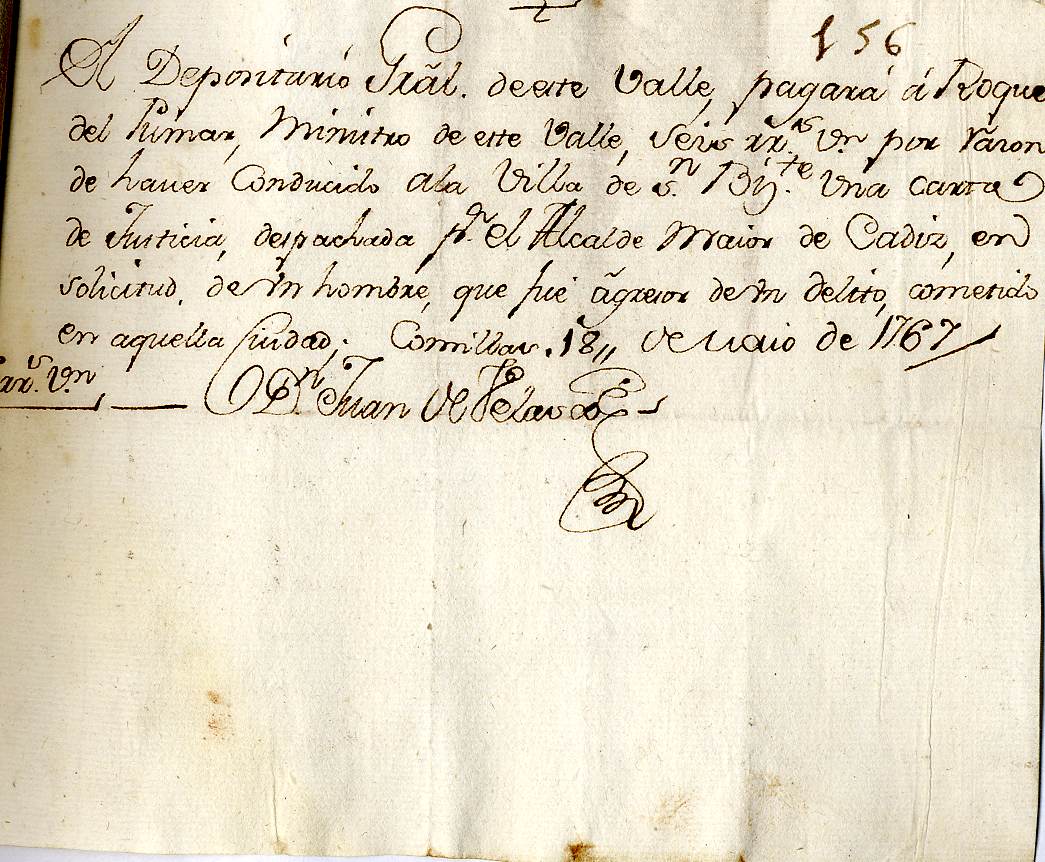 156
El Depositario Grãl. de este Valle, pagará á Roque
del Pumar, Ministro de este Valle, seis rr.s Vn. por Razon
de haver Conducido ala Villa de S.n Biz.te Una carta
de Justicia, despachada p.r el Alcalde Maior de Cadiz, en
solicitud, de Vn hombre, que fué agresor de Vn delito, cometido
en aquella Ciudad; Comillas. 18,, de Maio de 1767
rr.s V.n
D.n Juan de Velasco